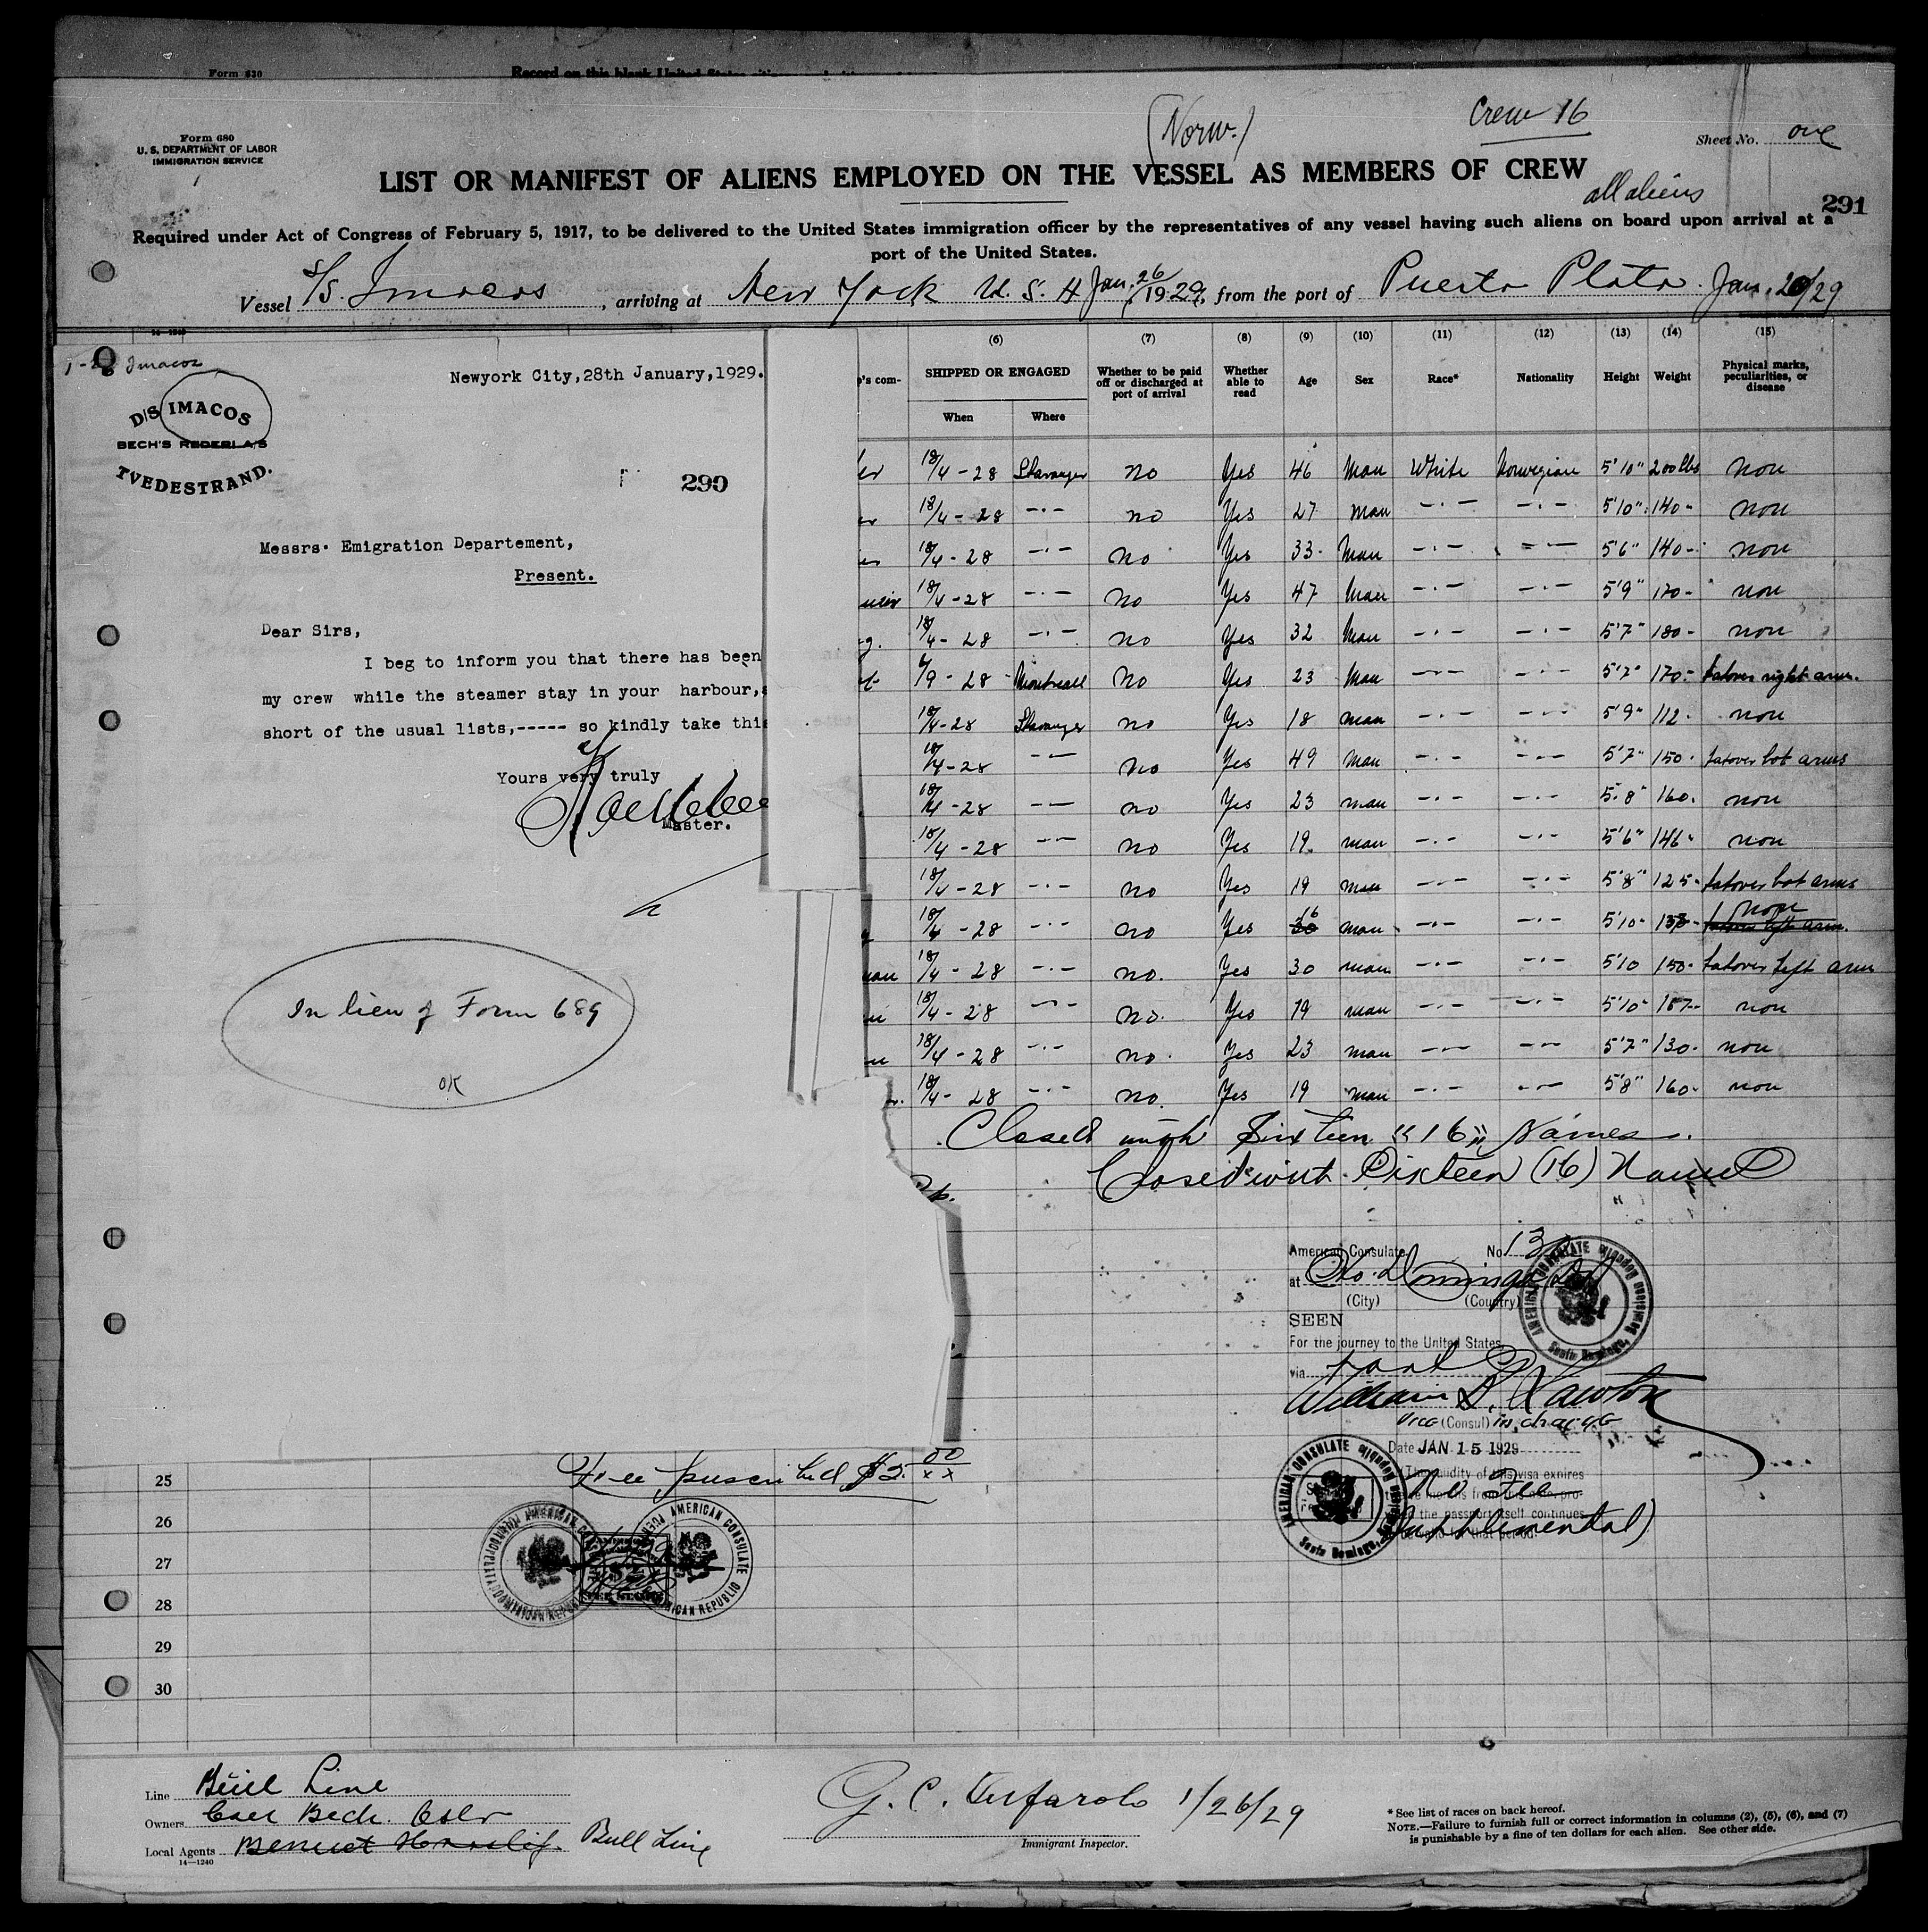 Form 630
Record on this blank United States
(Norw.)
Crew 16
Form 680
U. S. DEPARTMENT OF LABOR
IMMIGRATION SERVICE
Sheet No. one
LIST OR MANIFEST OF ALIENS EMPLOYED ON THE VESSEL AS MEMBERS OF CREW
all aliens
291
Required under Act of Congress of February 5, 1917, to be delivered to the United States immigration officer by the representatives of any vessel having such aliens on board upon arrival at a
port of the United States.
Vessel S/S. Imacos, arriving at New York U. S. A Jan. 26, 1929, from the port of Puerto Plata. Jan. 20/29
Imacos
Newyork City,28th January,1929.
D/S IMACOS
BECH'S REDERI A/S
TVEDESTRAND.
290
Messrs. Emigration Departement,
Present.
Dear Sirs,
I beg to inform you that there has been
my crew while the steamer stay in your harbour,
short of the usual lists,----- so kindly take this
Yours very truly
Master.
In lieu of Form 689
OK
's com-
(6) (7) (8) (9) (10) (11) (12) (13) (14) (15)
SHIPPED OR ENGAGED
When Where
Whether to be paid off or discharged at port of arrival
Whether able to read
Age Sex Race* Nationality Height Weight
Physical marks, peculiarities, or disease
18/4 - 28 Stavanger no Yes 46 Man White Norwegian 5'10" 200 lbs non
18/4 - 28 -·- no Yes 27 man -·- -·- 5'10" 140 - non
18/4 - 28 -·- no Yes 33 Man -·- -·- 5'6" 140 - non
18/4 - 28 -·- no Yes 47 Man -·- -·- 5'9" 170 - non
18/4 - 28 -·- no Yes 32 Man -·- -·- 5'7" 180 - non
6/9 - 28 Montreall no Yes 23 Man -·- -·- 5'7" 170 - tatover right arm.
18/4 - 28 Stavanger no Yes 18 man -·- -·- 5'9" 112 - non
18/4 - 28 -·- no Yes 49 man -·- -·- 5'7" 150 - tatover bot arms
18/4 - 28 -·- no Yes 23 man -·- -·- 5'8" 160 - non
18/4 - 28 -·- no Yes 19 man -·- -·- 5'6" 146 - non
18/4 - 28 -·- no Yes 19 man -·- -·- 5'8" 125 - tatover bot arms
18/4 - 28 -·- no Yes 16 man -·- -·- 5'10 - non
18/4 - 28 -·- no. Yes 30 man -·- -·- 5'10 150 - tatover left arm
18/4 - 28 -·- no. Yes 19 man -·- -·- 5'10" 157 - non
18/4 - 28 -·- no. Yes 23 man -·- -·- 5'7" 130 - non
18/4 - 28 -·- no. Yes 19 man -·- -·- 5'8" 160 - non
Closed with Sixteen "16" Names.
Closed with Sixteen (16) Names
American Consulate No 13
at Sto. Domingo D.R.
(City) (Country)
SEEN
For the journey to the United States
via
William B. Lawton
Vice (Consul) in charge
Date JAN 15 1929
The validity of this visa expires
No Fee
the passport itself continues
Supplemental)
AMERICAN CONSULATE
Santo Domingo, Dominican Republic
AMERICAN CONSULATE
Santo Domingo, Dominican Republic
Fee prescribed $2.00
AMERICAN CONSULATE
25
26
27
28
29
30
Line Bull Line
Owners
Local Agents Bull Line
14—1240
G. C. 1/26/29
Immigrant Inspector.
* See list of races on back hereof.
NOTE.—Failure to furnish full or correct information in columns (2), (5), (6), and (7)
is punishable by a fine of ten dollars for each alien. See other side.